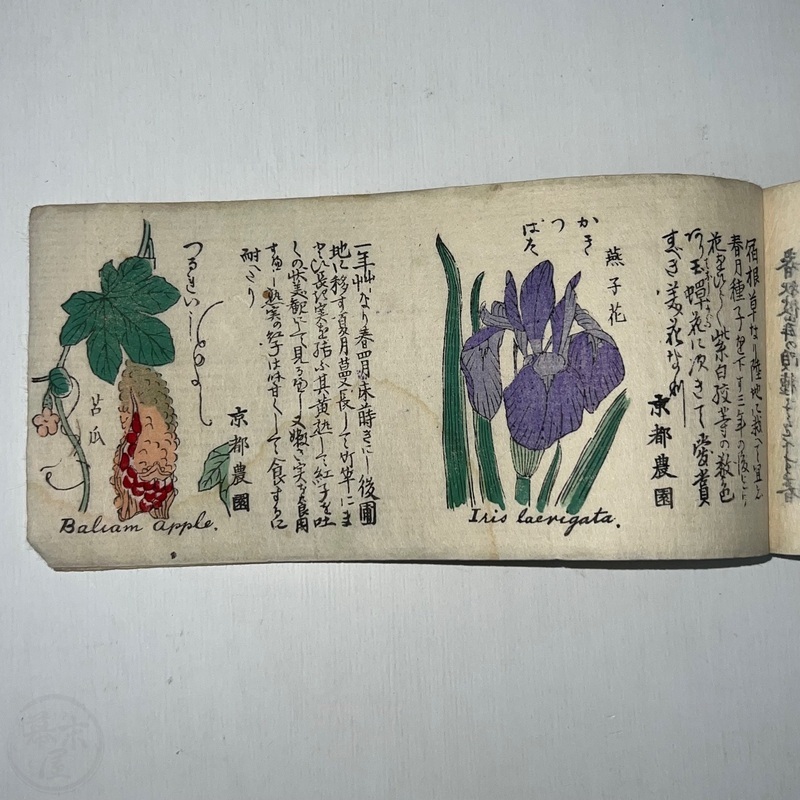 宿根草なり陸地に栽へて宜し
春月種子を下す三年の後より
花をひらく紫白絞等の数色
あり玉蟬花に次きて愛賞
すべき美花なり
京都農園
燕子花
かき
つ
ばた
Iris laerigata.
一年艸なり春四月床蒔きにし後圃
地に移す夏月蔓又長して竹竿にま
とひ長き実を結ふ其黄熟して紅子を吐
くの状美観にして見るべし又嫩き実を食用
すべし熟実の紅子は味甘くして食するに
耐へたり
京都農園
つるれいし
苦瓜
Balsam apple.